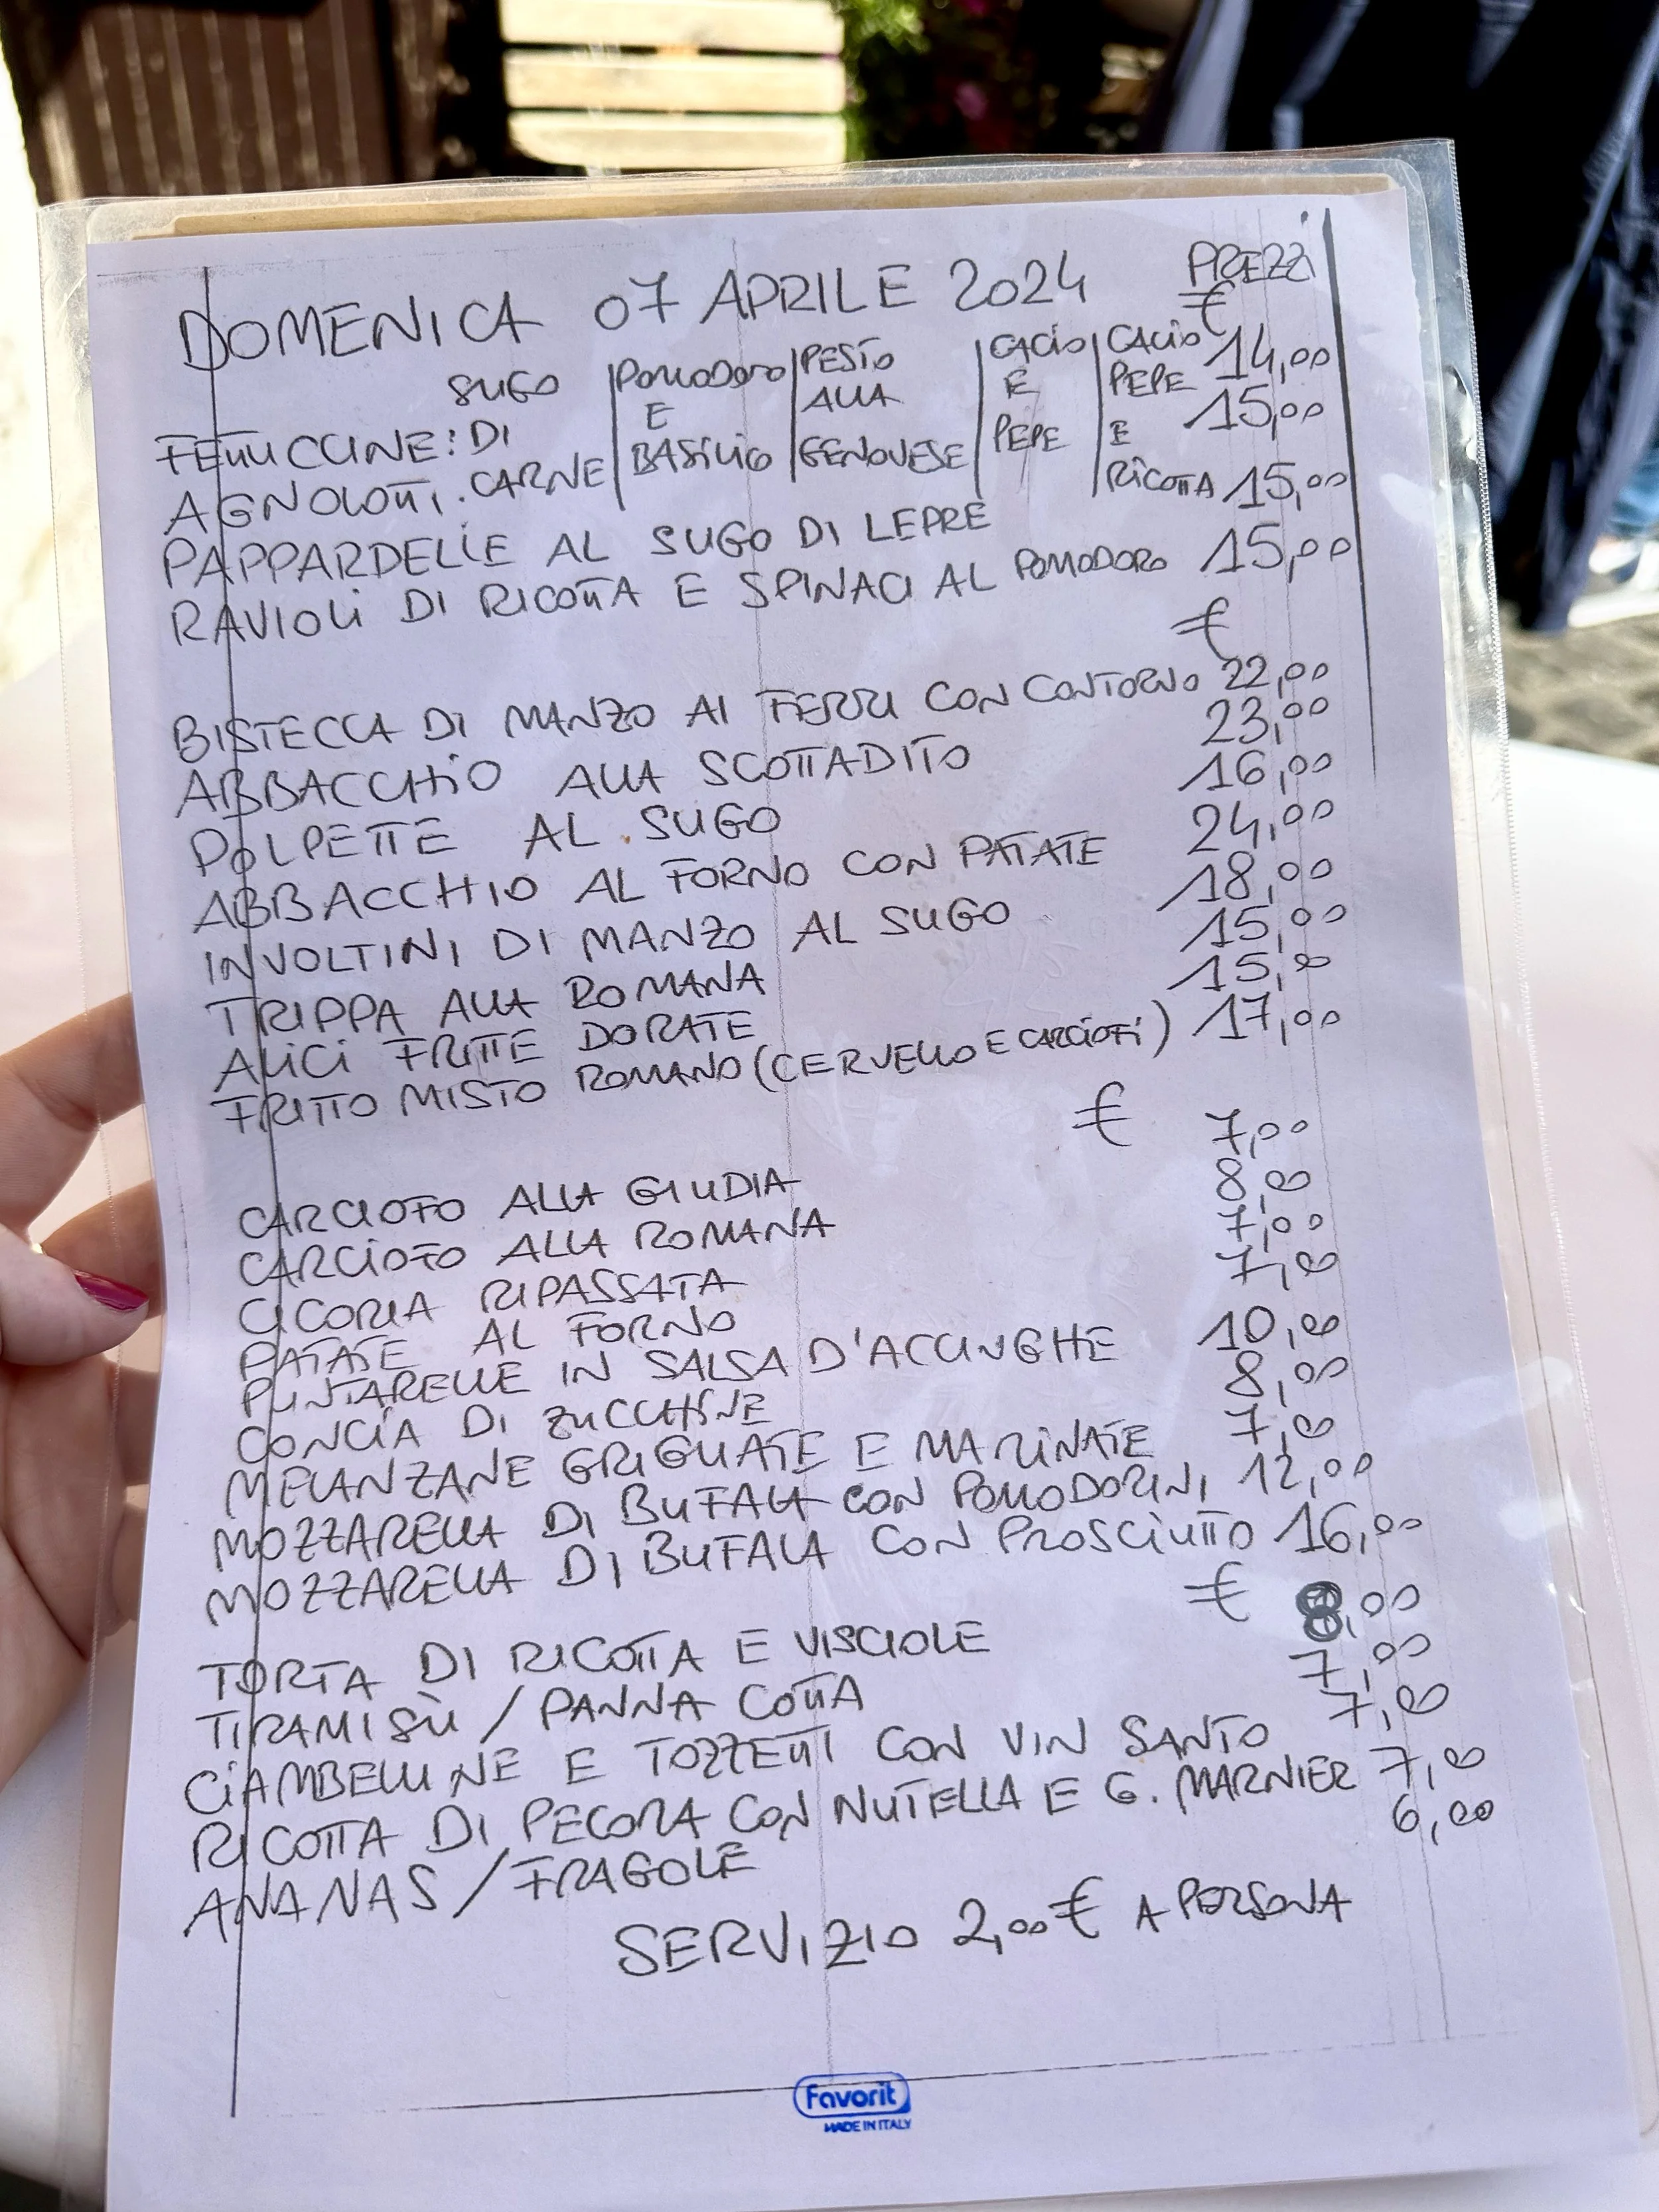 DOMENICA 07 APRILE 2024 PREZZI
€
FETTUCCINE: SUGO DI CARNE | POMODORO E BASILICO | PESTO ALLA GENOVESE | CACIO E PEPE | CACIO PEPE E RICOTTA 14,00
AGNOLOTTI. 15,00
PAPPARDELLE AL SUGO DI LEPRE 15,00
RAVIOLI DI RICOTTA E SPINACI AL POMODORO 15,00
€
BISTECCA DI MANZO AI FERRI CON CONTORNO 22,00
ABBACCHIO ALLA SCOTTADITO 23,00
POLPETTE AL SUGO 16,00
ABBACCHIO AL FORNO CON PATATE 24,00
INVOLTINI DI MANZO AL SUGO 18,00
TRIPPA ALLA ROMANA 15,00
ALICI FRITTE DORATE 15,00
FRITTO MISTO ROMANO (CERVELLO E CARCIOFI) 17,00
€
CARCIOFO ALLA GIUDIA 7,00
CARCIOFO ALLA ROMANA 8,00
CICORIA RIPASSATA 7,00
PATATE AL FORNO 7,00
PUNTARELLE IN SALSA D'ACCIUGHE 10,00
CONCIA DI ZUCCHINE 8,00
MELANZANE GRIGLIATE E MARINATE 7,00
MOZZARELLA DI BUFALA CON POMODORINI 12,00
MOZZARELLA DI BUFALA CON PROSCIUTTO 16,00
€
TORTA DI RICOTTA E VISCIOLE 8,00
TIRAMISÙ / PANNA COTTA 7,00
CIAMBELLINE E TOZZETTI CON VIN SANTO 7,00
RICOTTA DI PECORA CON NUTELLA E G. MARNIER 7,00
ANANAS / FRAGOLE 6,00
SERVIZIO 2,00€ A PERSONA
Favorit
MADE IN ITALY